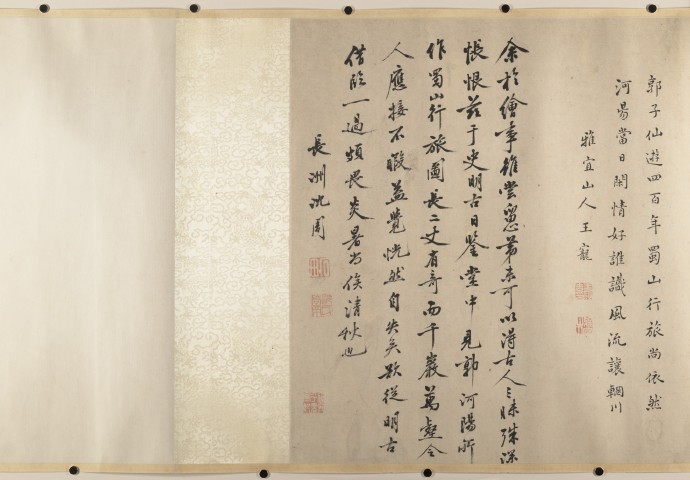 郭子仙遊四百年蜀山行旅尚依然
河陽當日閑情好誰識風流讓輞川
雅宜山人王寵
余於繪事雖嘗留意第未可以得古人之昧殊深
悵恨茲于史明古日鑒堂中見郭河陽所
作蜀山行旅圖長二丈有奇而千巖萬壑令
人應接不暇益覺恍然自失矣欲從明古
借臨一過頗畏炎暑為俟清秋也
長洲沈周